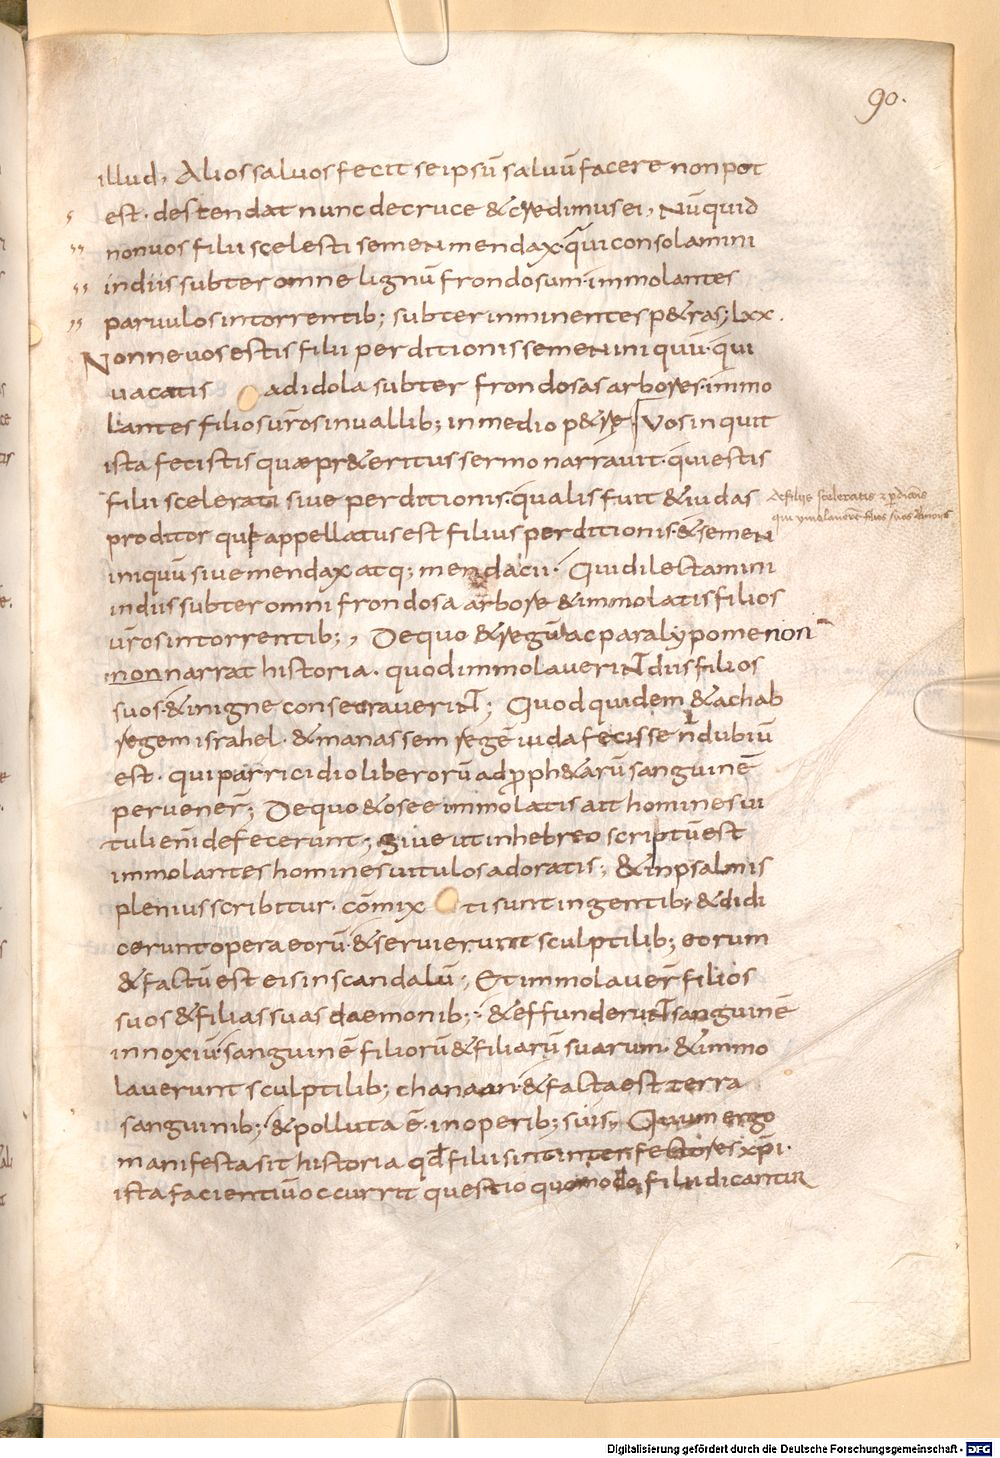 90.
illud, Alios salvos fecit se ipsū salvū facere non pot
est. descendat nunc de cruce & credimus ei, Nūquid
non vos filii scelesti semen mendax. qui consolamini
in diis subter omne lignū frondosum. immolantes
parvulos in torrentib; subter inminentes p&ras; lxx.
Nonne vos estis filii perditionis semen iniquū. qui
vacatis ad idola subter frondosas arbores. immo
lantes filios vr̄os in vallib; in medio p&re. Vos inquit
ista fecistis quæ pr&eritus sermo narravit. qui estis
filii scelerati sive perditionis. qualis fuit & iudas
proditor qui appellatus est filius perditionis. & semen
iniquū sive mendax atq; mendacii. Qui dilectamini
in diis subter omni frondosa arbore & immolatis filios
vr̄os in torrentib;, De quo & regū ac paralypomenon
non narrat historia. quod immolaverint diis filios
suos. & in igne consecraverint; Quod quidem & achab
regem israhel. & manassem regē iuda fecisse n̄ dubiū
est. qui parricidio liberorū ad proph&arū sanguinē
pervener̄; De quo & osee immolatis ait homines vi
tuli eni defecerunt; Sive ut in hebreo scriptū est
immolantes homines vitulos adoratis; & in psalmis
plenius scribitur. cōmixti sunt in gentib; & didi
cerunt opera eorū. & servierunt sculptilib; eorum
& factū est eis in scandalū; Et immolaver̄ filios
suos & filias suas daemonib;; & effunderunt sanguinē
innoxiū. sanguinē filiorū & filiarū suarum. & immo
laverunt sculptilib; chanaan. & facta est terra
sanguinib; & polluta ē. in operib; suis, Quum ergo
manifesta sit historia qd filii sint interfectores xp̄i.
ista facientiū occurrit questio quomodo filii dicantur
De filiis sceleratis & pdicionis
qui ymolaverunt filios suos demoniis
Digitalisierung gefördert durch die Deutsche Forschungsgemeinschaft - DFG